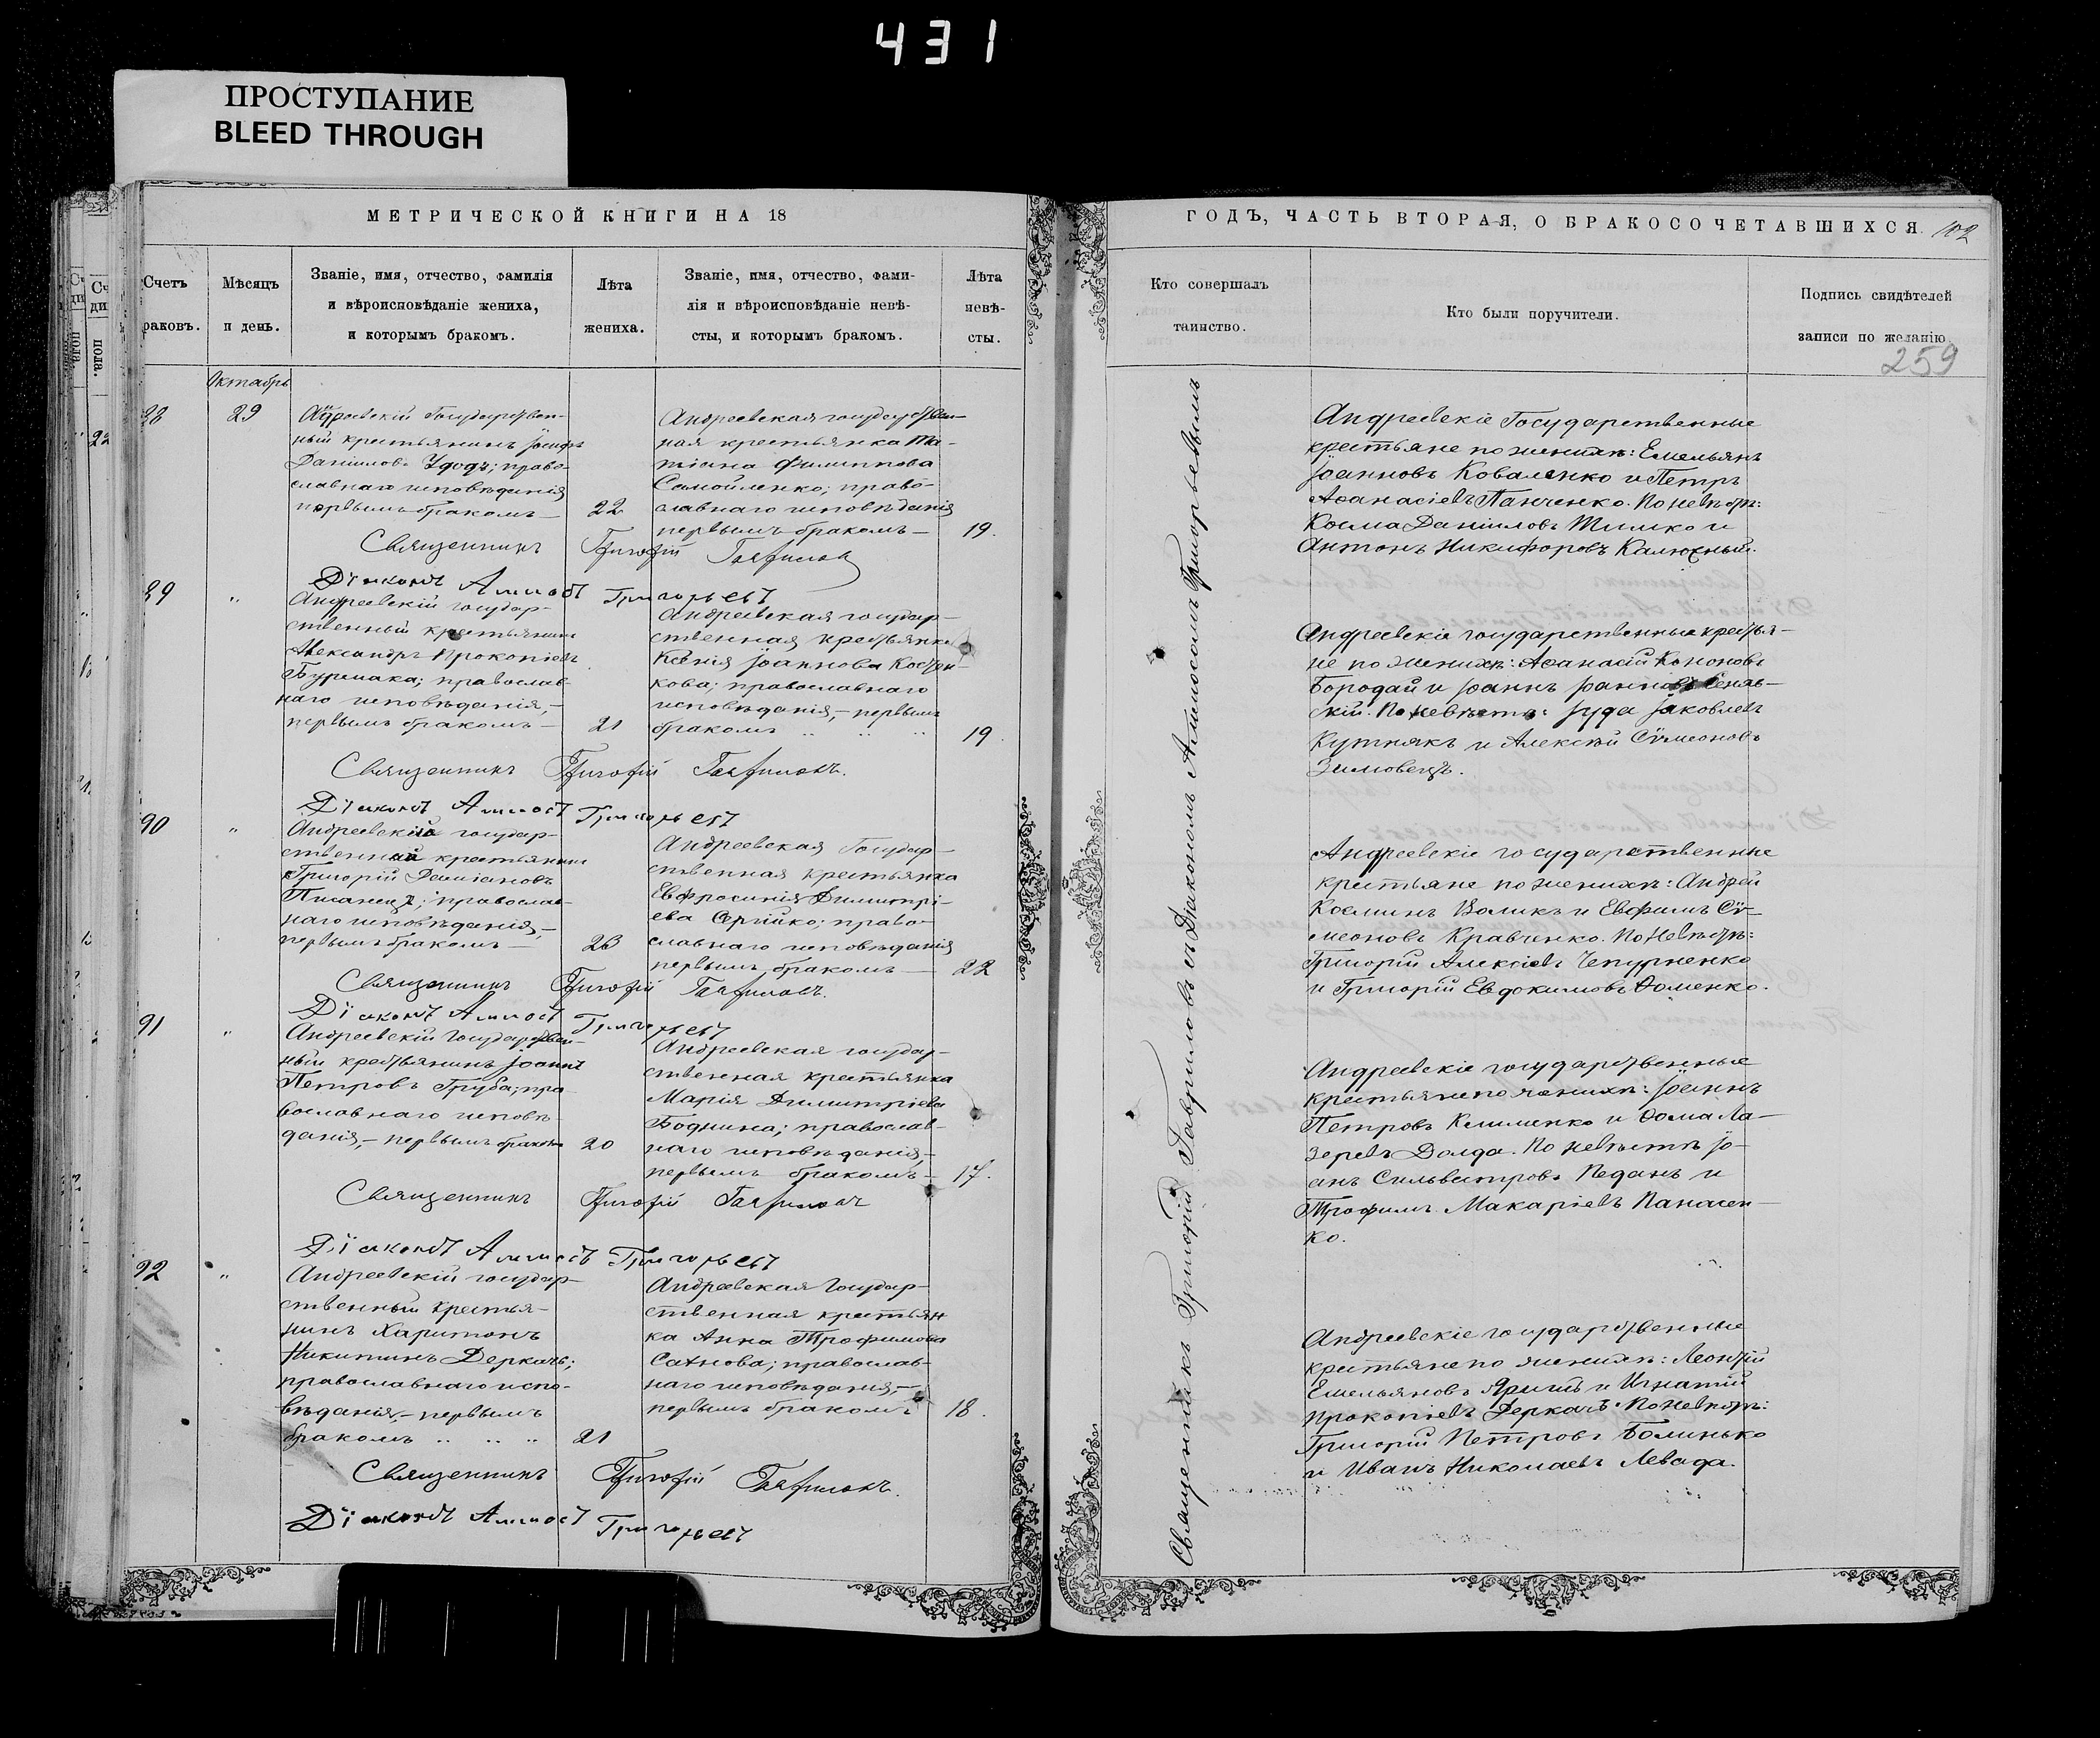 431
ПРОСТУПАНИЕ
BLEED THROUGH
МЕТРИЧЕСКОЙ КНИГИ НА 18
Счетъ
раковъ.
Мѣсяцъ
и день.
Званіе, имя, отчество, фамилія
и вѣроисповѣданіе жениха,
и которымъ бракомъ.
Лѣта
жениха.
Званіе, имя, отчество, фами-
лія и вѣроисповѣданіе невѣ-
сты, и которымъ бракомъ.
Лѣта
невѣ-
сты.
Октябрь
88
29
Андреевскій Государствен-
ный крестьянинъ Іосифъ
Даніиловъ Удодъ; право-
славнаго исповѣданія
первымъ бракомъ —
22
Андреевская государствен-
ная крестьянка Та-
тіана Филиппова
Самойленко; право-
славнаго исповѣданія
первымъ бракомъ —
19.
Священникъ Григорій Гавриловъ
Діаконъ Аммосъ Григорьевъ
89
"
Андреевскій государ-
ственный крестьянинъ
Александръ Прокопіевъ
Бурлака; православ-
наго исповѣданія, —
первымъ бракомъ —
21
Андреевская государ-
ственная крестьянка
Ксенія Іоаннова Костен-
кова; православнаго
исповѣданія, — первымъ
бракомъ " " "
19.
Священникъ Григорій Гавриловъ.
Діаконъ Аммосъ Григорьевъ
90
"
Андреевскій государ-
ственный крестьянинъ
Григорій Даміановъ
Писанецъ; православ-
наго исповѣданія, —
первымъ бракомъ —
23
Андреевская Государ-
ственная крестьянка
Евфросинія Димитрі-
ева Сергійко; право-
славнаго исповѣданія
первымъ бракомъ —
22
Священникъ Григорій Гавриловъ.
Діаконъ Аммосъ Григорьевъ
91
"
Андреевскій Государствен-
ный крестьянинъ Іоаннъ
Петровъ Груба; пра-
вославнаго исповѣ-
данія, — первымъ бракомъ
20
Андреевская государ-
ственная крестьянка
Марія Димитріева
Боднина; православ-
наго исповѣданія, —
первымъ бракомъ —
17.
Священникъ Григорій Гавриловъ
Діаконъ Аммосъ Григорьевъ
92
"
Андреевскій государ-
ственный крестья-
нинъ Харитонъ
Никитинъ Деркачъ;
православнаго испо-
вѣданія, — первымъ
бракомъ " " "
21
Андреевская Государ-
ственная крестьян-
ка Анна Трофимова
Сахнова; православ-
наго исповѣданія, —
первымъ бракомъ
18.
Священникъ Григорій Гавриловъ.
Діаконъ Аммосъ Григорьевъ
ГОДЪ, ЧАСТЬ ВТОРАЯ, О БРАКОСОЧЕТАВШИХСЯ. 102
Кто совершалъ
таинство.
Кто были поручители.
Подпись свидѣтелей
записи по желанію.
259
Священникъ Григорій Гавриловъ съ Діакономъ Аммосомъ Григорьевымъ
Андреевскіе Государственные
крестьяне по женихѣ: Емельянъ
Іоанновъ Коваленко и Петръ
Аѳанасіевъ Панченко. По невѣстѣ:
Косма Даніиловъ Тимко и
Антонъ Никифоровъ Калюжный.
Андреевскіе государственные крестья-
не по женихѣ: Аѳанасій Кононовъ
Бородай и Іоаннъ Іоанновъ
скій. По невѣстѣ: Іуда Іаковлевъ
Кутнякъ и Алексѣй Сѵмеоновъ
Зимовецъ.
Андреевскіе государственные
крестьяне по женихѣ: Андрей
Косминъ Воликъ и Евфимъ Сѵ-
меоновъ Кравченко. По невѣстѣ:
Григорій Алексіевъ Чепурненко
и Григорій Евдокимовъ Ѳоменко.
Андреевскіе государственные
крестьяне по женихѣ: Іоаннъ
Петровъ Клименко и Ѳома Ла-
заревъ Долда. По невѣстѣ Іо-
анъ Сильвестровъ Педанъ и
Трофимъ Макаріевъ Панасен-
ко.
Андреевскіе государственные
крестьяне по женихѣ: Леонтій
Емельяновъ Яришъ и Игнатій
Прокопіевъ Деркачъ. По невѣстѣ:
Григорій Петровъ Болинько
и Иванъ Николаевъ Левада.